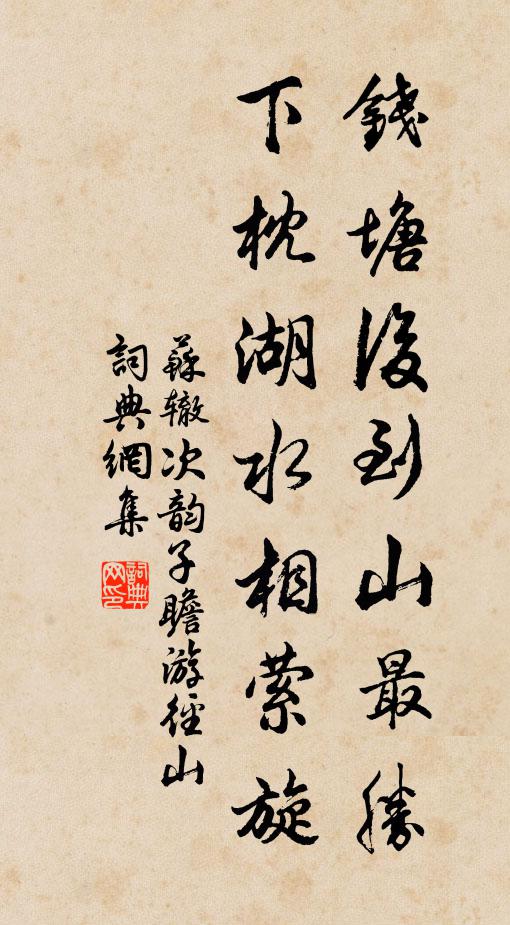 錢塘後到山最勝
下枕湖水相縈旋
蘇辙次韵子瞻游徑山
詞典網集
詞典网印